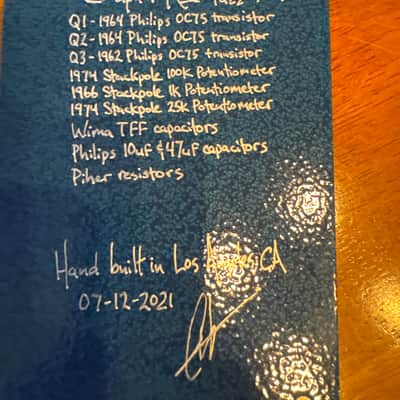 Q1-1964 Philips OC75 transistor
Q2-1964 Philips OC75 transistor
Q3-1962 Philips OC75 transistor
1974 Stackpole 100k Potentiometer
1966 Stackpole 1k Potentiometer
1974 Stackpole 25k Potentiometer
Wima TFF capacitors
Philips 10uF & 47uF capacitors
Piher resistors
Hand built in Los Angeles, CA
07-12-2021